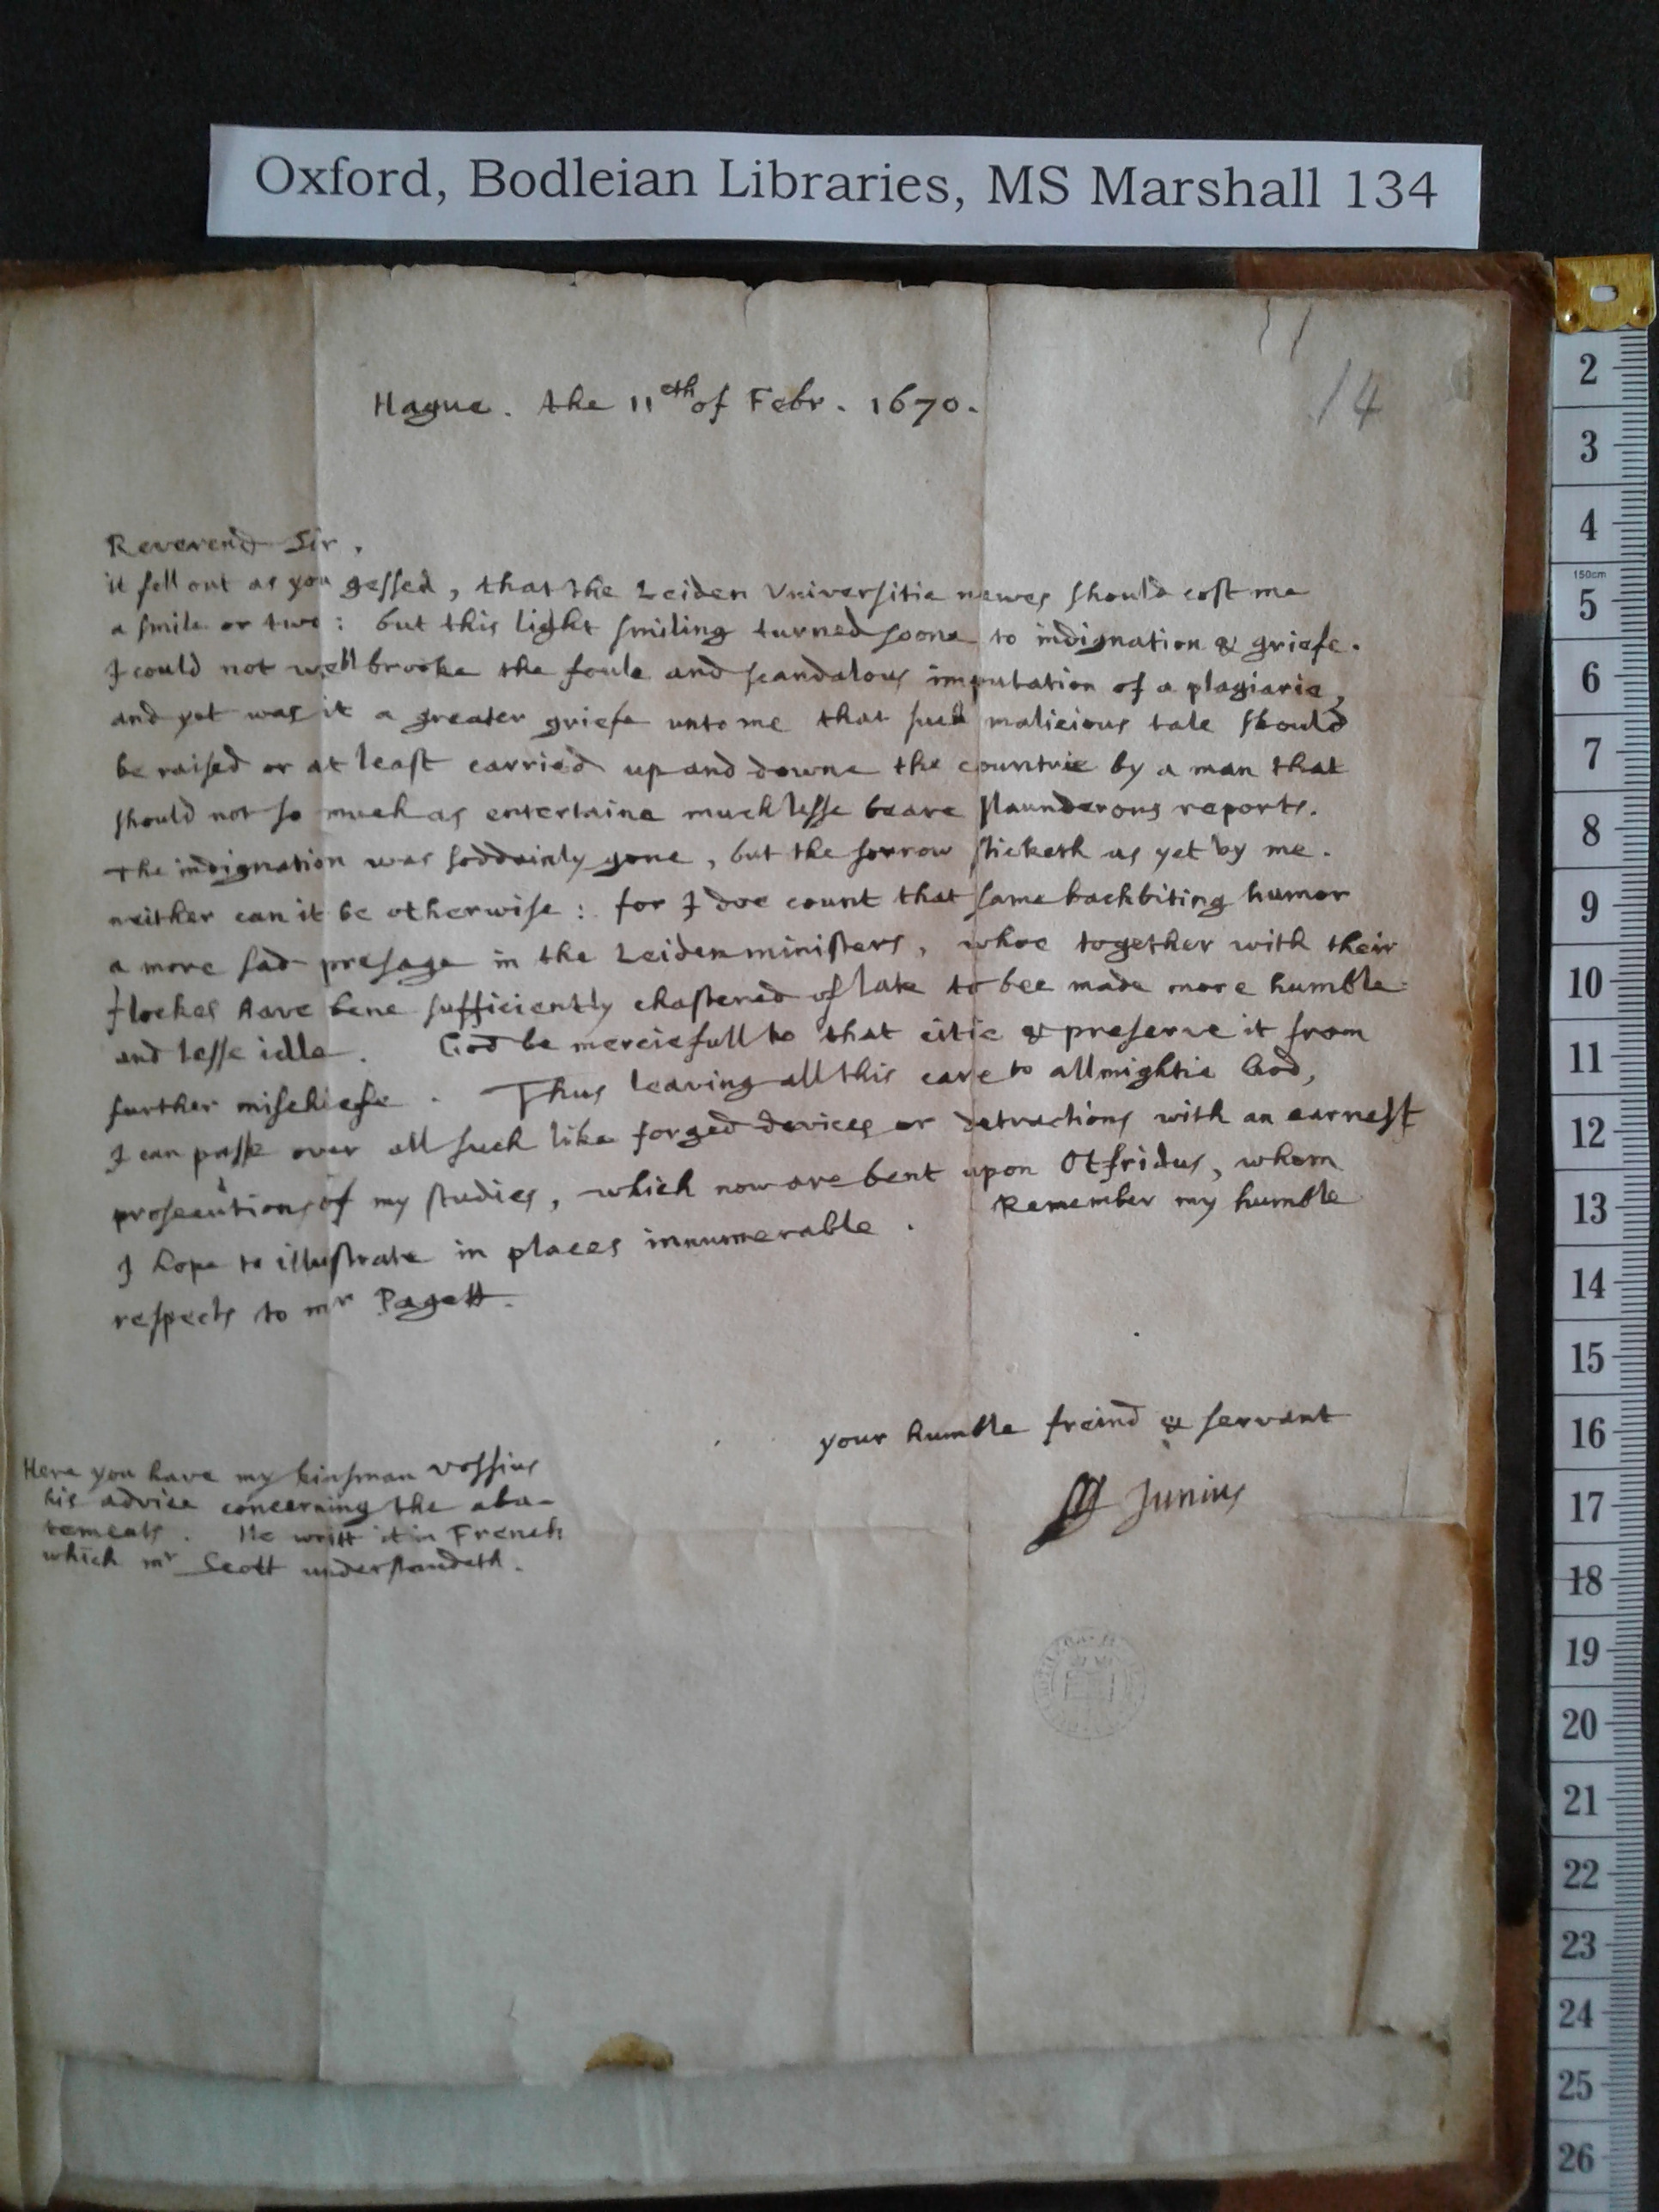 Oxford, Bodleian Libraries, MS Marshall 134
14
Hague. the 11eth of Febr. 1670.
Reverend Sir,
it fell out as you gessed, that the Leiden Vniversitie newes should cost me
a smile or two: but this light smiling turned soone to indignation & griefe.
I could not well brooke the foule and scandalous imputation of a plagiarie,
and yet was it a greater griefe unto me that such malicious tale should
be raised or at least carried up and downe the countrie by a man that
should not so much as entertaine much lesse beare slaunderous reports.
The indignation was soddainly gone, but the sorrow sticketh as yet by me.
neither can it be otherwise: for I doe count that same backbiting humor
a more sad presage in the Leiden ministers, whoe together with their
flockes have bene sufficiently chastened of late to bee made more humble
and lesse idle. God be merciefull to that citie & preserve it from
further mischiefe. Thus leaving all this care to allmightie God,
I can passe over all such like forged devices or detractions with an earnest
prosecutions of my studies, which now are bent upon Otfridus, whom
I hope to illustrate in places innumerable. Remember my humble
respects to mr Pagett.
your humble freind & servant
Junius
Here you have my kinsman Vossius
his advice concerning the aba-
tements. He writt it in French
which mr Scott understandeth.
150cm
2
3
4
5
6
7
8
9
10
11
12
13
14
15
16
17
18
19
20
21
22
23
24
25
26